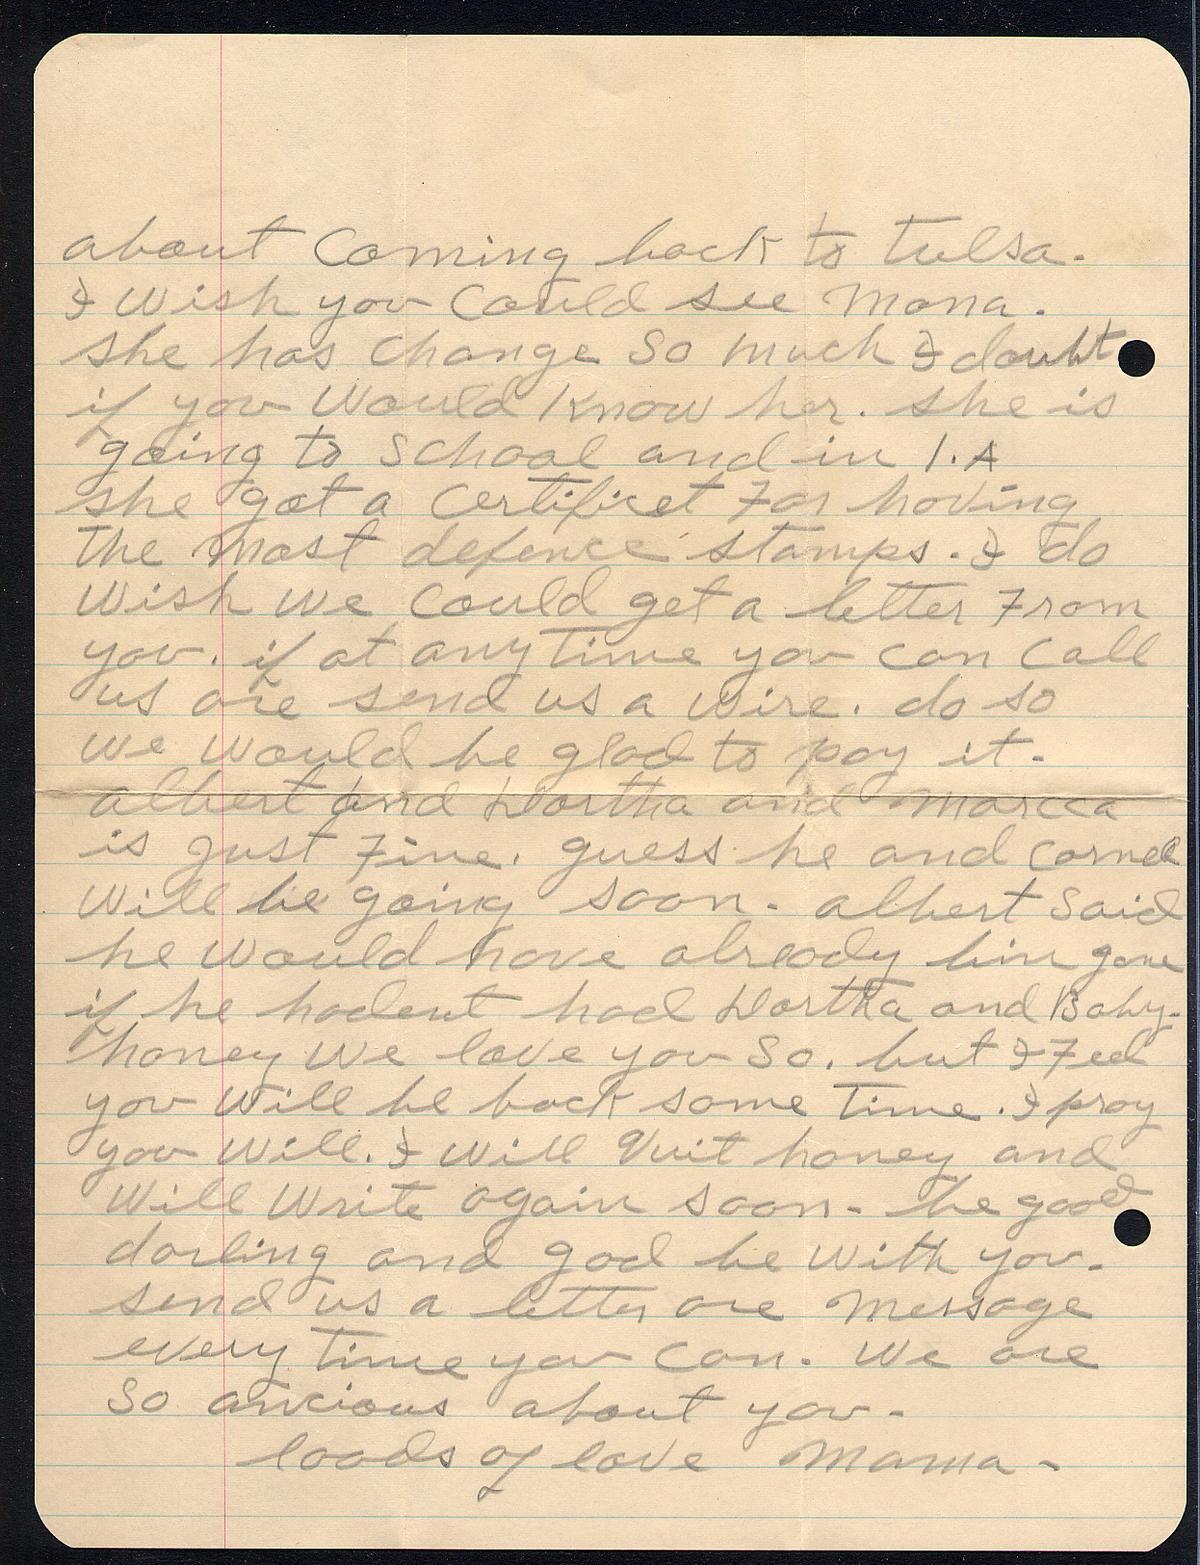 about Coming back to tulsa.
I wish you Could see Mona.
she has change so much I doubt
if you would know her. she is
going to school and in 1.A
she got a Certificet For having
the most defence stamps. I do
wish we Could get a letter From
you. if at any time you can Call
us are send us a wire. do so
we would be glad to pay it.
albert and Dortha and Marcca
is just Fine. guess he and Cornel
will be going soon. albert said
he would have already bin gone
if he hadent had Dortha and Baby.
honey we love you so. but I Feel
you will be back some time. I pray
you will. I will Quit honey and
will write again soon. be good
darling and god be with you.
send us a letter are message
every time you can. we are
so ancious about you.
loads of love Mama.